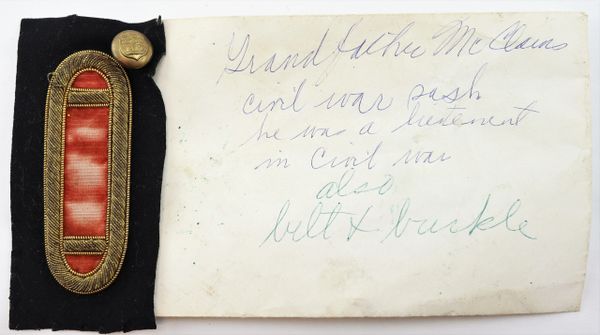 Grandfather McClains
civil war sash
he was a lieutenent
in civil war
also
belt & buckle